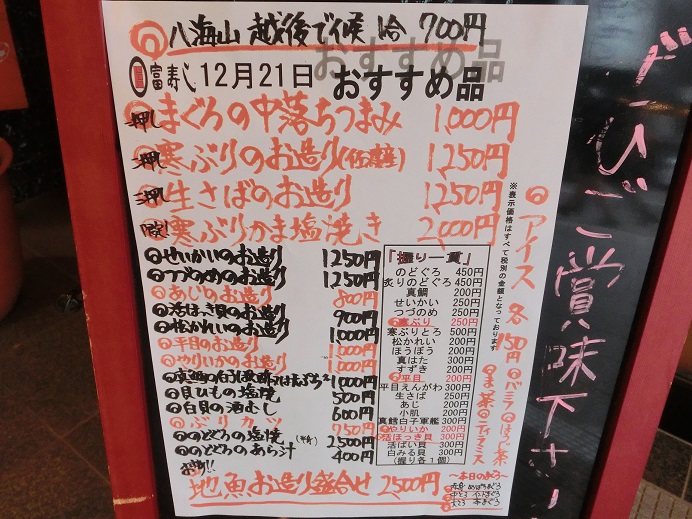 八海山 越後で候 1合 700円
富寿し 12月21日 おすすめ品
おすすめ品
一押し まぐろの中落ちつまみ 1,000円
一押し 寒ぶりのお造り(佐渡産) 1,250円
一押し 生さばのお造り 1,250円
限定! 寒ぶりかま塩焼き 2,000円
せいかいのお造り 1250円
つづのめのお造り 1250円
あじのお造り 800円
活ほっき貝のお造り 900円
松かれいのお造り 1,000円
平目のお造り 1,000円
やりいかのお造り 1,000円
真鱈の白子 1,000円
貝ひもの塩焼 500円
白貝の酒むし 600円
ぶりカツ 750円
のどぐろの塩焼 (半身) 2,500円
のどぐろのあら汁 400円
地魚お造り盛合せ 2,500円
「握り一貫」
のどぐろ 450円
炙りのどぐろ 450円
真鯛 200円
せいかい 250円
つづのめ 250円
寒ぶり 250円
寒ぶりとろ 500円
松かれい 200円
ほうぼう 200円
真はた 300円
すずき 200円
平目 200円
平目えんがわ 300円
生さば 250円
あじ 200円
小肌 200円
真鱈白子軍艦 300円
やりいか 200円
活ほっき貝 300円
活ばい貝 300円
白みる貝 300円
(握り各1個)
※表示価格はすべて税別の金額となっております
アイス 各150円
バニラ
ほうじ茶
まっ茶
ティラミス
~本日のまぐろ~
赤身 めばちまぐろ
中とろ インドまぐろ
大とろ 本まぐろ
ぜひご賞味下さい